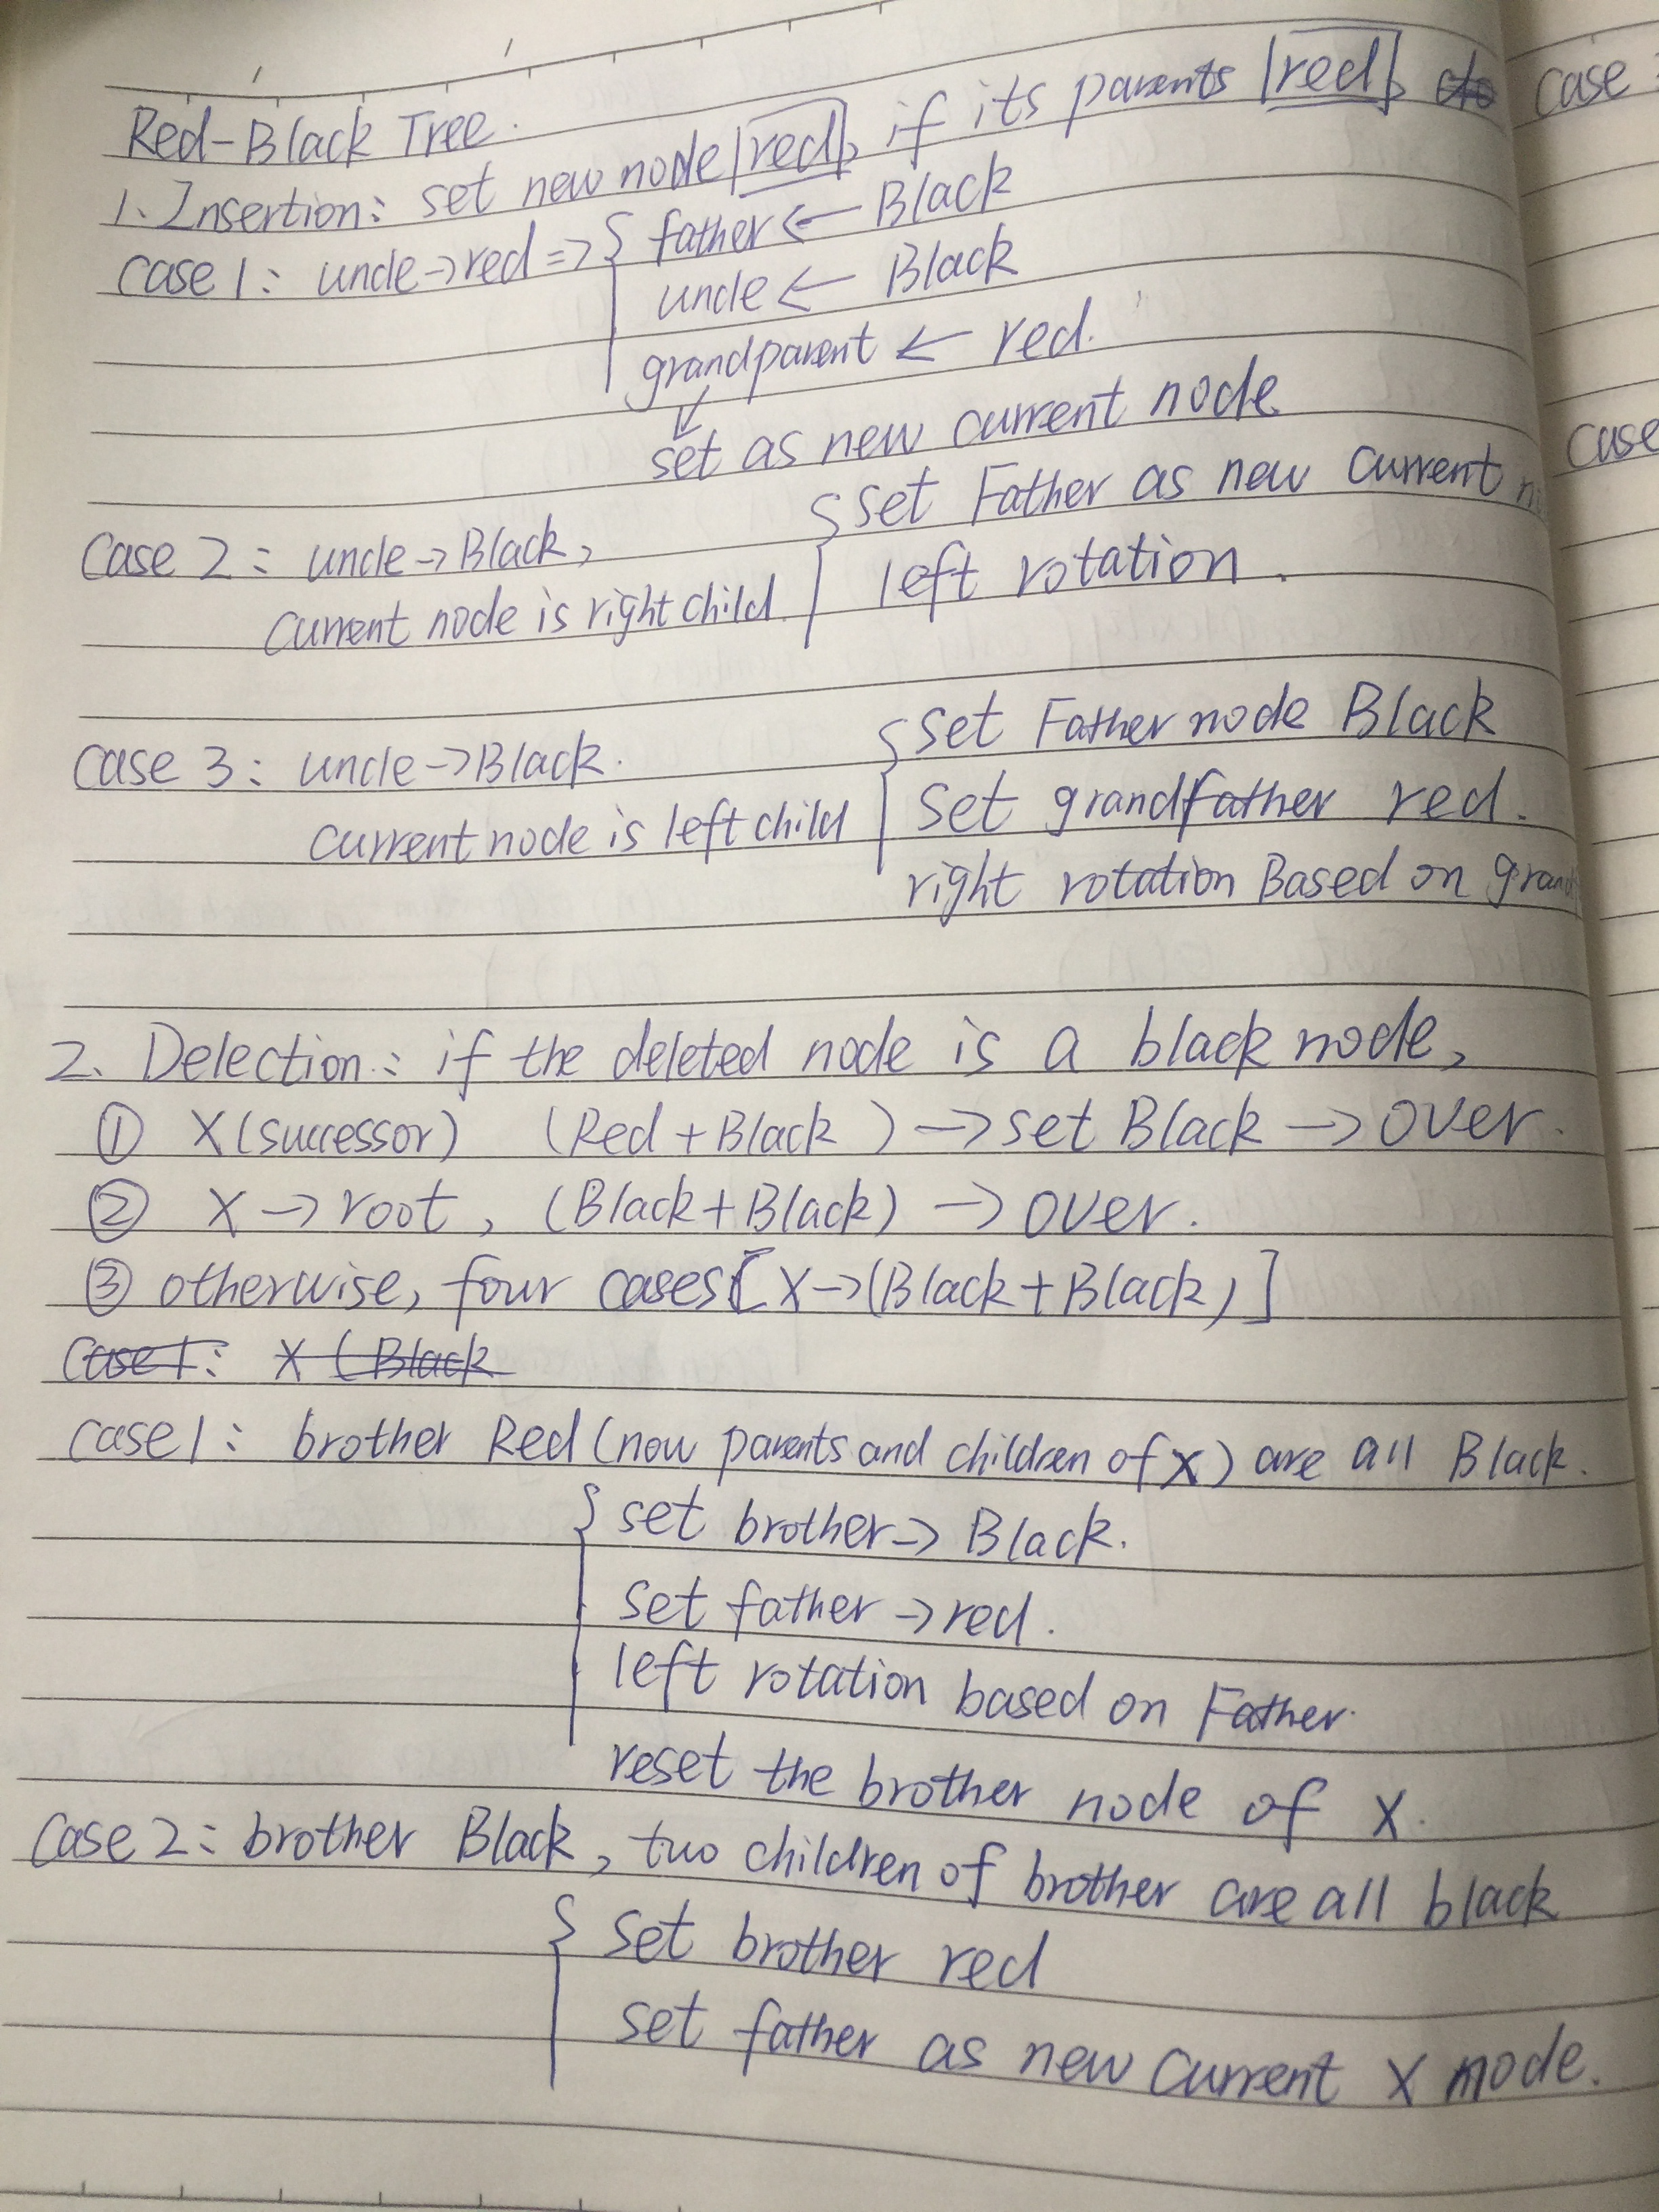 Red-Black Tree.
1. Insertion: set new node red, if its parents red,
case 1: uncle→red => { father ← Black
uncle ← Black
grandparent ← red.
↓
set as new current node
case 2: uncle→Black, { set Father as new current
current node is right child left rotation.
case 3: uncle→Black. { set Father node Black
current node is left child set grandfather red.
right rotation Based on
2. Delection: if the deleted node is a black node,
① X(successor) (Red+Black) → set Black → over.
② X → root, (Black+Black) → over.
③ otherwise, four cases[X→(Black+Black)]
case 1: X (Black
case 1: brother Red (now parents and children of X) are all Black.
{ set brother → Black.
set father → red.
left rotation based on Father.
reset the brother node of X.
case 2: brother Black, two children of brother are all black
{ set brother red
set father as new current X node.
case
case